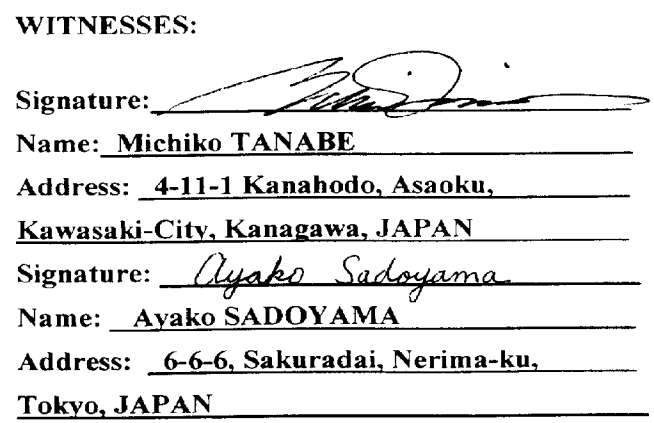 WITNESSES:
Signature:
Name: Michiko TANABE
Address: 4-11-1 Kanahodo, Asaoku,
Kawasaki-City, Kanagawa, JAPAN
Signature: Ayako Sadoyama
Name: Ayako SADOYAMA
Address: 6-6-6, Sakuradai, Nerima-ku,
Tokyo, JAPAN